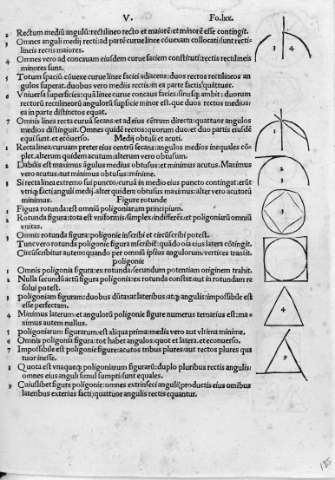 V. Fo.lxx.
2 Rectum mediũ angulũ: rectilineo recto et maiorẽ: et minorẽ esse contingit.
3 Omnes anguli medij recti: ad partẽ curue linee cõuexam collocati: sunt rectilineis rectis maiores.
4 Omnes vero ad concauam eiusdem curue faciem constituti: rectis rectilineis minores sunt.
5 Totum spaciũ cõuexe curue linee faciei adiacens: duos rectos rectilineos angulos superat. duobus vero medijs rectis: in ea parte sactis
6 Vniuersa superficies: quã linee curue concaua facies
rectorũ rectilineorũ angulorũ superficie minor est. que duos rectos medios: ea in parte distinctos equat.
7 Omnis linea recta curua secans: et ad eius cẽtrum directa: quattuor angulos medios distinguit. Omnes quidẽ rectos: quorum duo et duo partis eiusdẽ equi sunt. et ecõuerso. Medij obtusi et acuti.
1 Recta linea: curuam preter eius centrũ secans: angulos medios inequales cõplet. alterum quidem acutum alterum vero obtusum.
2 Dabilis est maximus angulus medius obtusus: et minimus acutus. Maximus vero acutus: aut minimus obtusus: minime.
3 Si recta linea extremo sui puncto: curuã in medio eius puncto contingat:
facti anguli medij. alter quidem obtusus maximus: alter vero acutorũ minimus. Figure rotunde
1 Figura rotunda: est omniũ poligoniarum principium.
2 Rotunda figura: tota est vniformis: simplex: indifferẽs: et poligoniarũ omniũ vnitas.
3 Omnis rotunda figura: poligonie inscribi et circũscribi potest.
4 Tunc vero rotunda poligonie figura inscribit: quãdo oĩa eius latera cõtingit. Circũscribitur autem: quando per omniũ ipsius angulorum: vertices transit.
poligonie
1 Omnis poligonia figura: ex rotundis: secundum potentiam originem trahit.
2 Nulla secundũ actũ figura poligonia: ex rotunda constat: aut in rotundam resolui potest.
3 poligoniam figuram: duobus dũtaxat lateribus atque angulis: impossibile est esse perfectam.
4 Minimus laterum: et angulorũ poligonie figure numerus ternarius est: maximus autem nullus.
5 poligoniarum figurarum: est aliqua prima: media vero aut vltima minime.
6 Omnis poligonia figura: tot habet angulos: quot et latera. et econuerso.
7 Impossibile est poligonie figure: acutos tribus plures: aut rectos plures quattuor inesse.
8 Quota est vnaqueque poligoniarum figurarũ: duplo pluribus rectis angulis: omnes eius anguli simul sumpti sunt equales.
9 Cuiuslibet figure poligonie: omnes extrinseci anguli: productis eius omnibus lateribus exterius facti: quattuor angulis rectis equantur.
3 4
2
4
9
185